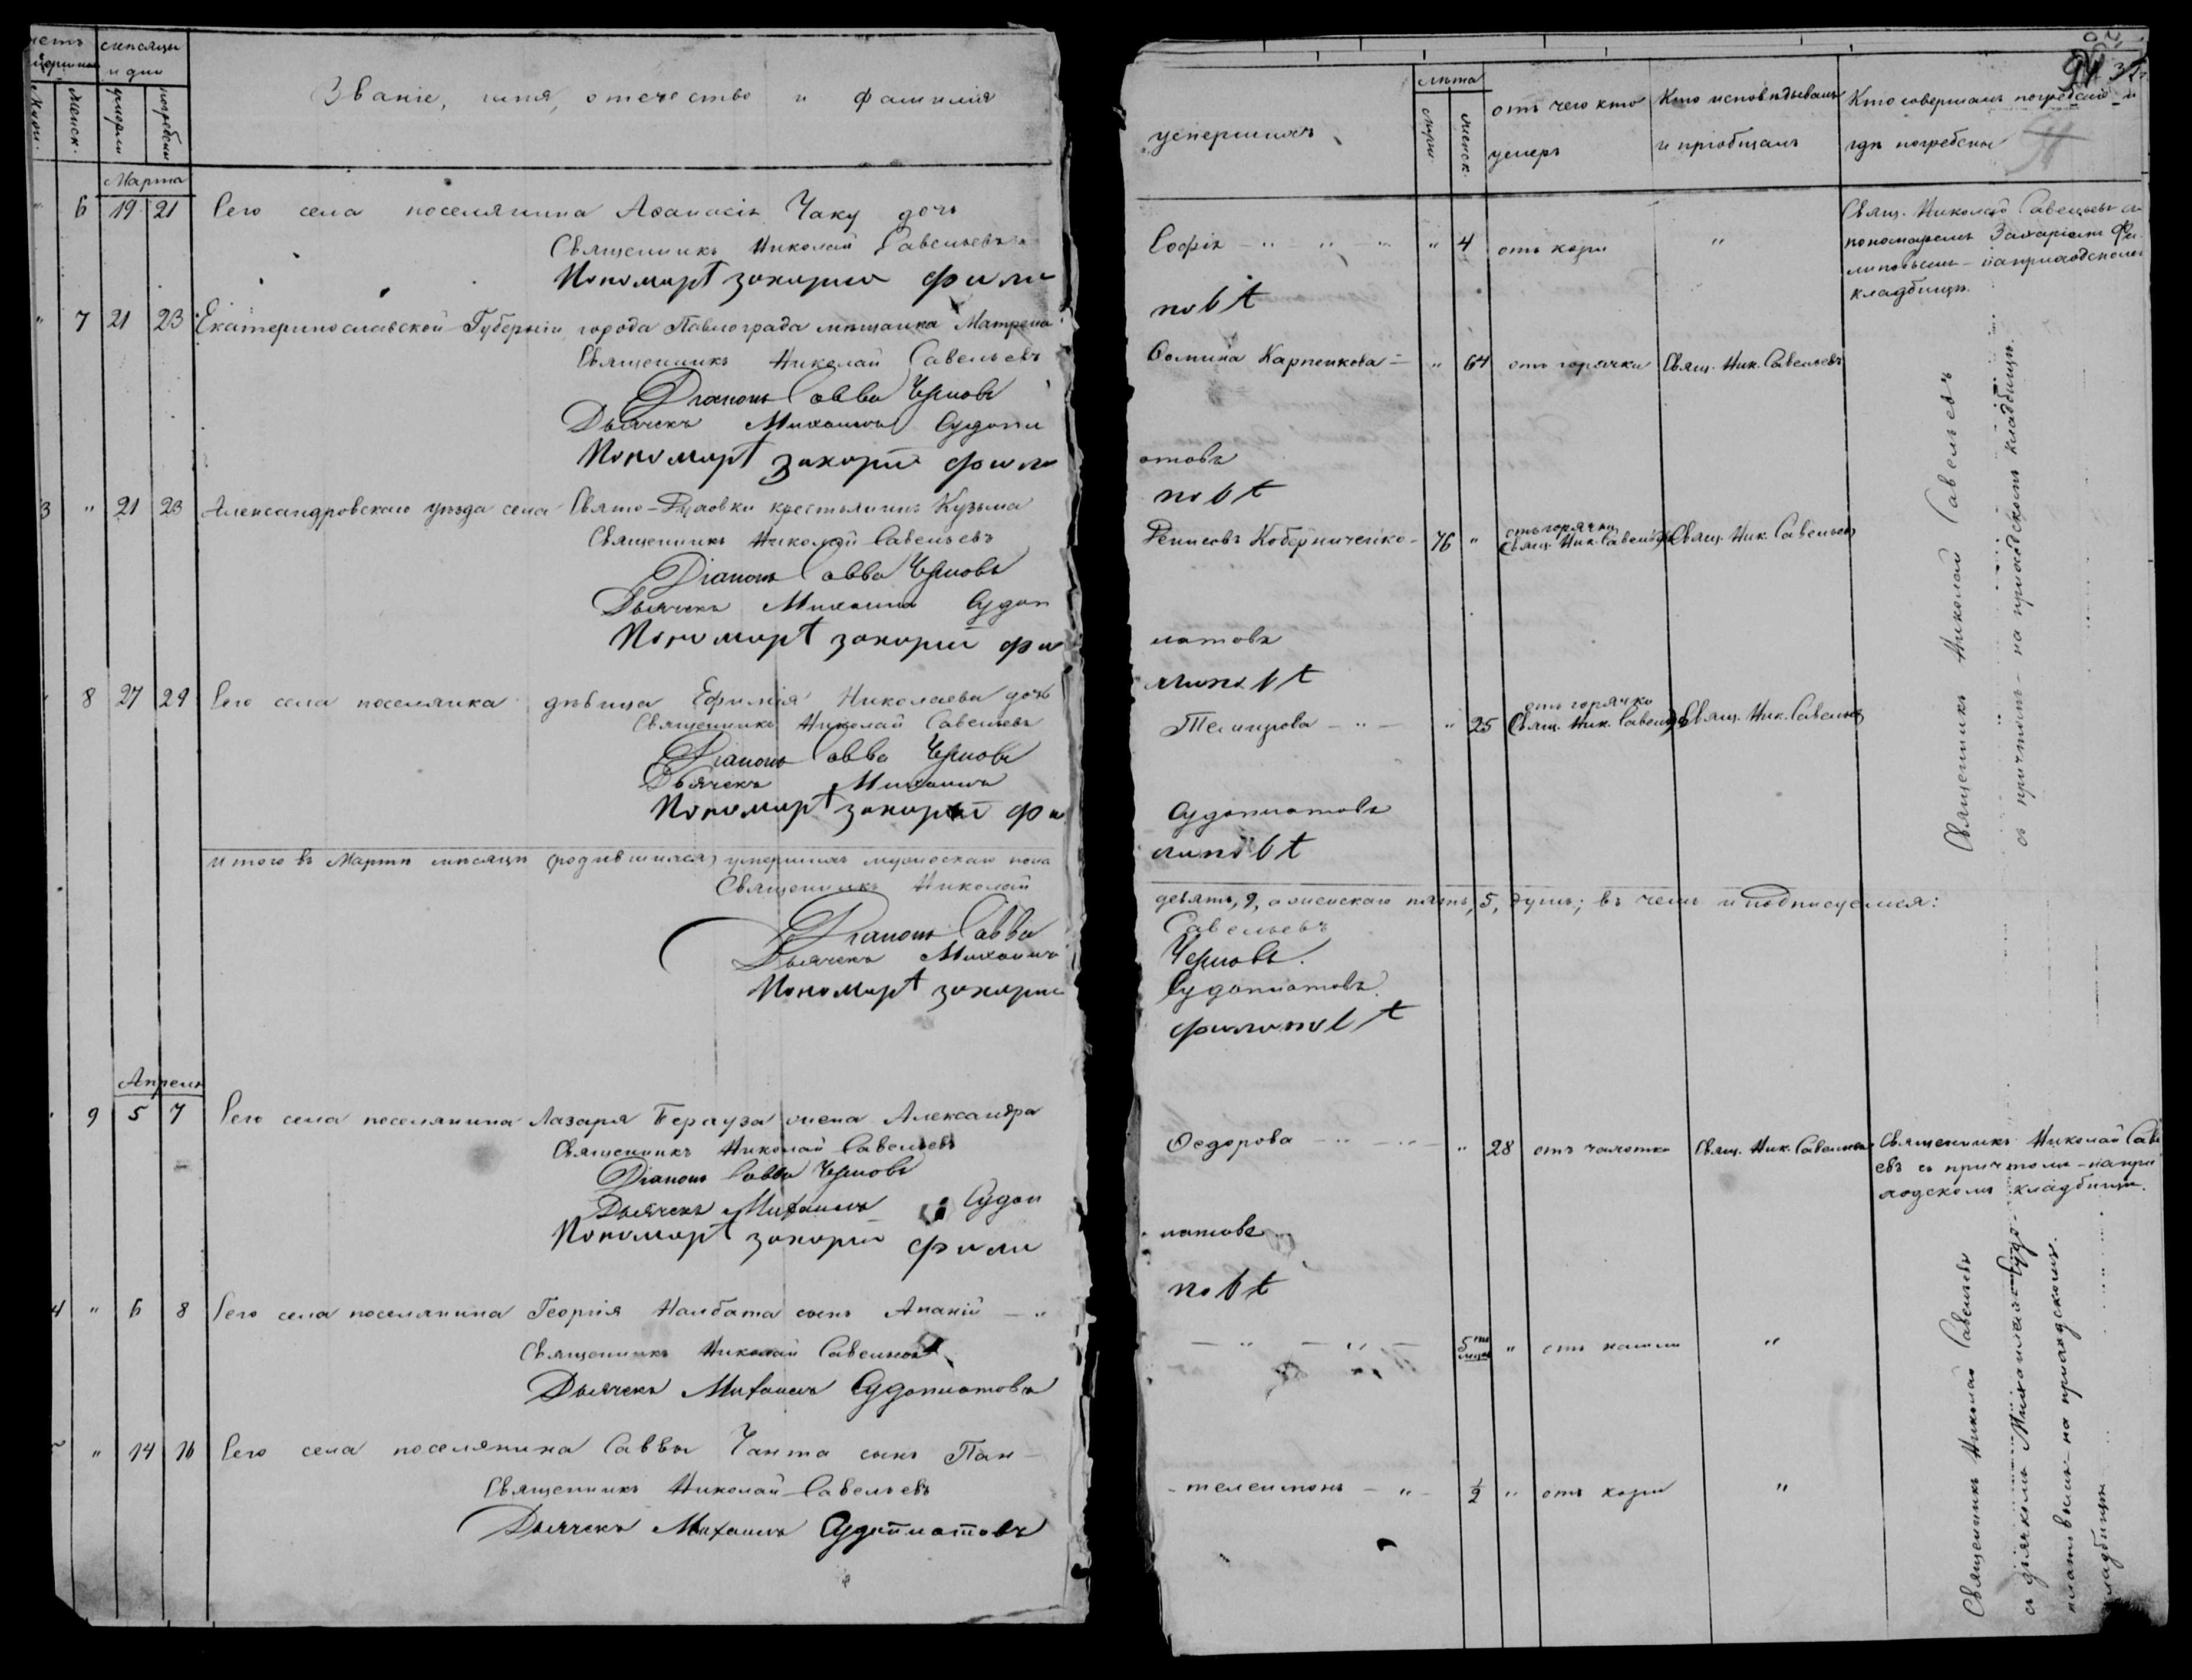 счетъ умершихъ
мѣсяцы и дни
Мужи.
Женск.
умерли
погребен
Званіе, имя, отечество и фамилія
Марта
" 6 19 21 Сего села поселянина Аѳанасія Чаку дочь
Священникъ Николай Савельевъ
Пономарь Захарій Фили
" 7 21 23 Екатеринославской Губерніи города Павлограда мѣщанка Матрена
Священникъ Николай Савельевъ
Діаконъ Савва Черновъ
Дьячекъ Михаилъ Судопл
Пономарь Захарій Фили
3 " 21 23 Александровскаго уѣзда села Свято-Духовки крестьянинъ Кузьма
Священникъ Николай Савельевъ
Діаконъ Савва Черновъ
Дьячекъ Михаилъ Судоп
Пономарь Захарій Фи
8 27 29 Сего села поселянка дѣвица Ефимія Николаева дочь
Священникъ Николай Савельевъ
Діаконъ Савва Черновъ
Дьячекъ Михаилъ
Пономарь Захарій Фи
Итого въ Мартѣ мѣсяцѣ (родившихся) умершихъ мужескаго пола
Священникъ Николай
Діаконъ Савва
Дьячекъ Михаилъ
Пономарь Захарій
Апреля
9 5 7 Сего села поселянина Лазаря Берауза жена Александра
Священникъ Николай Савельевъ
Діаконъ Савва Черновъ
Дьячекъ Михаилъ Судоп
Пономарь Захарій Фили
4 " 6 8 Сего села поселянина Георгія Налбата сынъ Ананій — "
Священникъ Николай Савельевъ
Дьячекъ Михаилъ Судоплатовъ
" 14 16 Сего села поселянина Саввы Чанта сынъ Пан-
Священникъ Николай Савельевъ
Дьячекъ Михаилъ Судоплатовъ
умершихъ
лѣта
Мужи.
Женск.
отъ чего кто умеръ
Кто исповѣдывалъ и пріобщалъ
Кто совершалъ погребеніе и гдѣ погребены
Софія — " — " — " " 4 отъ кори "
Свящ. Николай Савельевъ съ
пономаремъ Захаріемъ Фи-
липовымъ - на приходскомъ
кладбищѣ.
повъ
Ѳомина Карпенкова — " 64 отъ горячки Свящ. Ник. Савельевъ
атовъ
повъ
Денисовъ Коберниченко - 76 " отъ горячки
Свящ. Ник. Савельевъ Свящ. Ник. Савельевъ
латовъ
липовъ
Темирова — " — " 25 отъ горячки
Свящ. Ник. Савельевъ Свящ. Ник. Савельевъ
Судоплатовъ
липовъ
Священникъ Николай Савельевъ
съ причтомъ - на приходскомъ кладбищѣ.
девять, 9, а женскаго пять, 5, душъ; въ чемъ и подписуемся:
Савельевъ
Черновъ.
Судоплатовъ.
Филиповъ
Ѳедорова — " — " — " 28 отъ чахотки Свящ. Ник. Савельевъ
Священникъ Николай Савель
евъ съ причтомъ - на при
ходскомъ кладбищѣ.
латовъ
повъ
— " — " — 5ти мѣсяц " отъ кашли "
-телеимонъ — " — 1/2 " отъ кори "
Священникъ Николай Савельевъ
съ дьячкомъ Михаиломъ Судо-
платовымъ - на приходскомъ
кладбищѣ